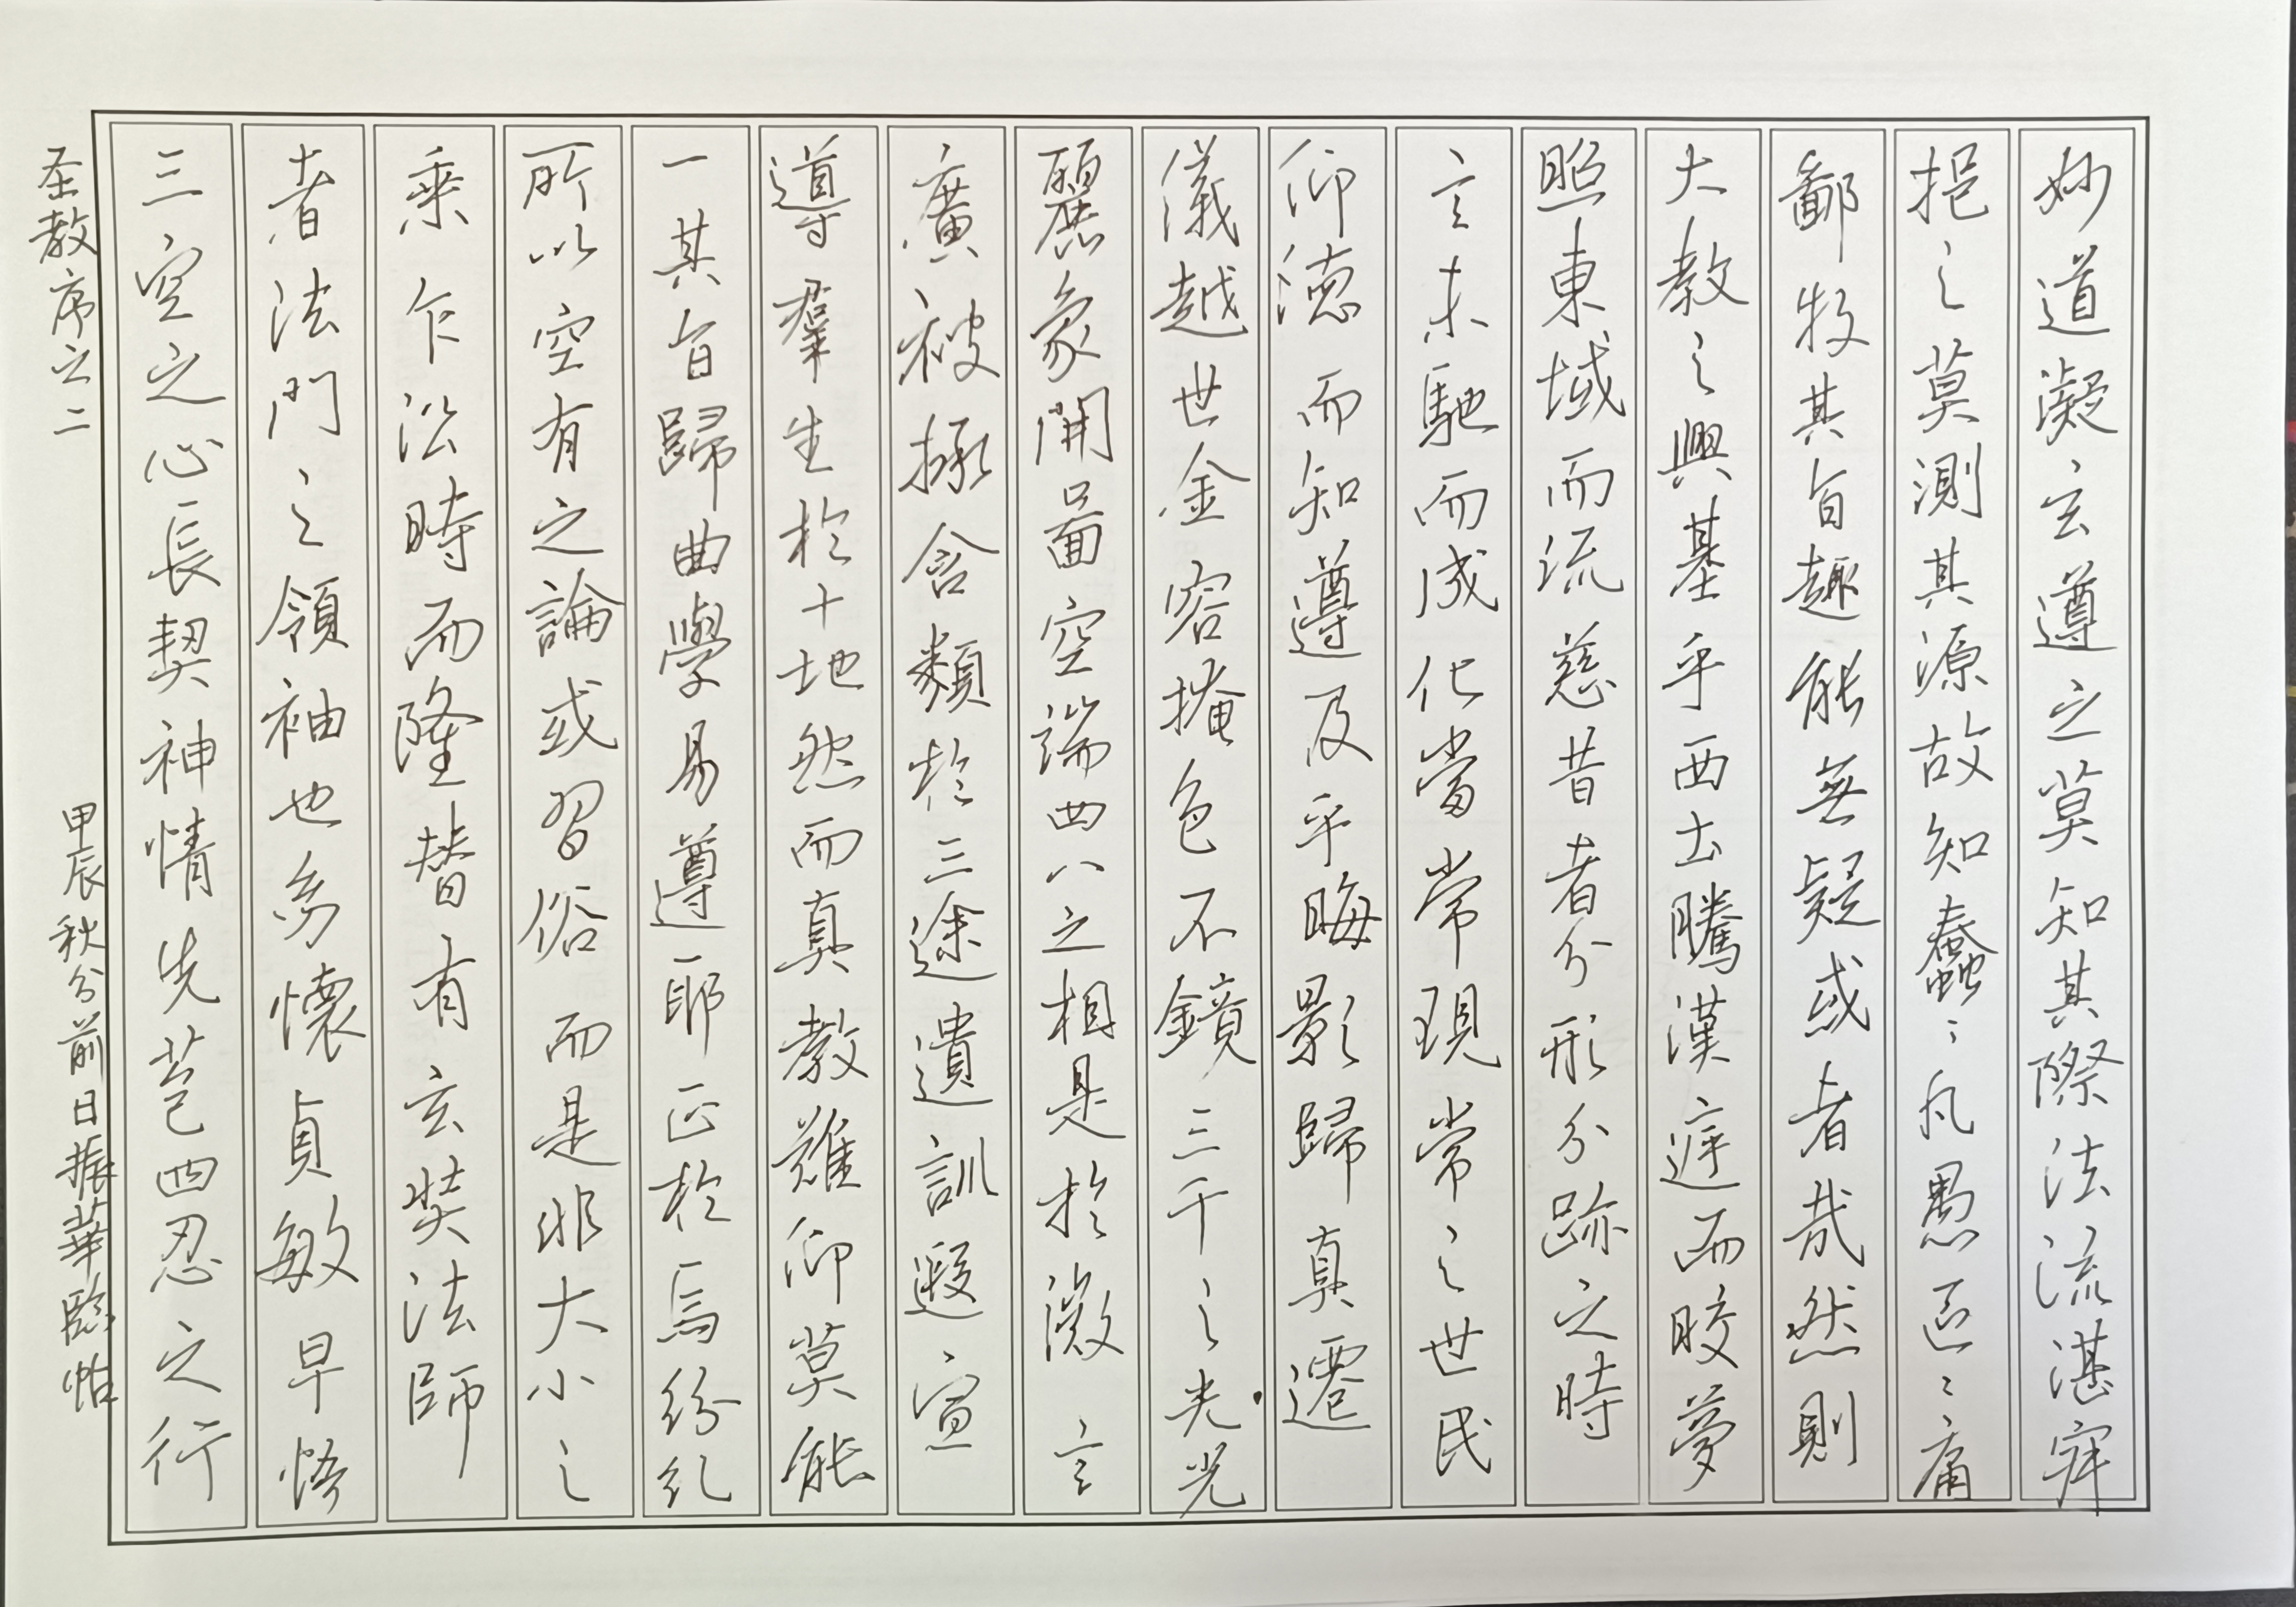 妙道凝玄遵之莫知其際法流湛寂
挹之莫測其源故知蠢〻凡愚區〻庸
鄙投其旨趣能無疑或者哉然則
大教之興基乎西土騰漢庭而皎夢
照東域而流慈昔者分形分跡之時
言未馳而成化當常現常之世民
仰德而知遵及乎晦影歸真遷
儀越世金容掩色不鏡三千之光光
麗象開圖空端四八之相是於微言
廣被拯含類於三途遺訓遐宣
導群生於十地然而真教難仰莫能
一其旨歸曲學易遵耶正於焉紛糺
所以空有之論或習俗而是非大小之
乘乍沿時而隆替有玄奘法師
者法門之領袖也幼懷貞敏早悟
三空之心長契神情先苞四忍之行
圣教序之二
甲辰秋分前日振華臨帖